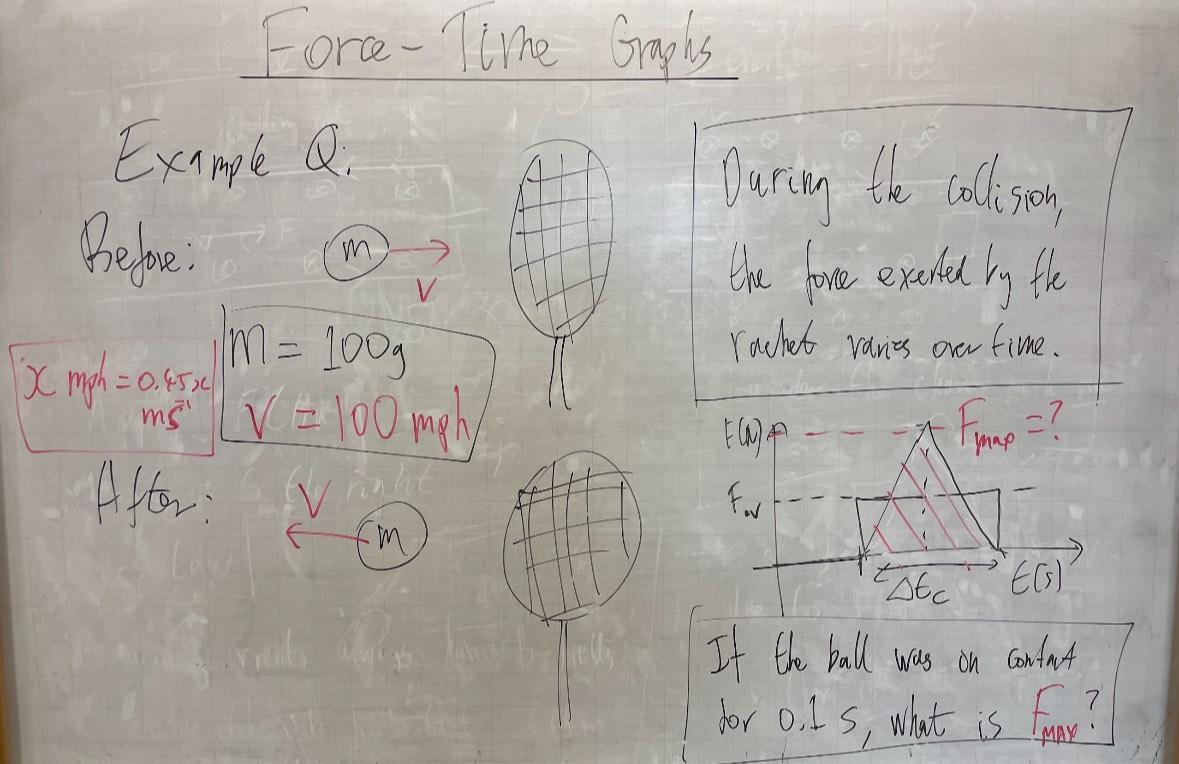 Force - Time Graphs
Example Q:
Before:
m
V
x mph = 0.45x
ms⁻¹
m = 100g
V = 100 mph
After:
V
m
During the collision,
the force exerted by the
racket varies over time.
F(N)
Fmax = ?
Fav
Δtc
t(s)
If the ball was on contact
for 0.1 s, what is FMAX?